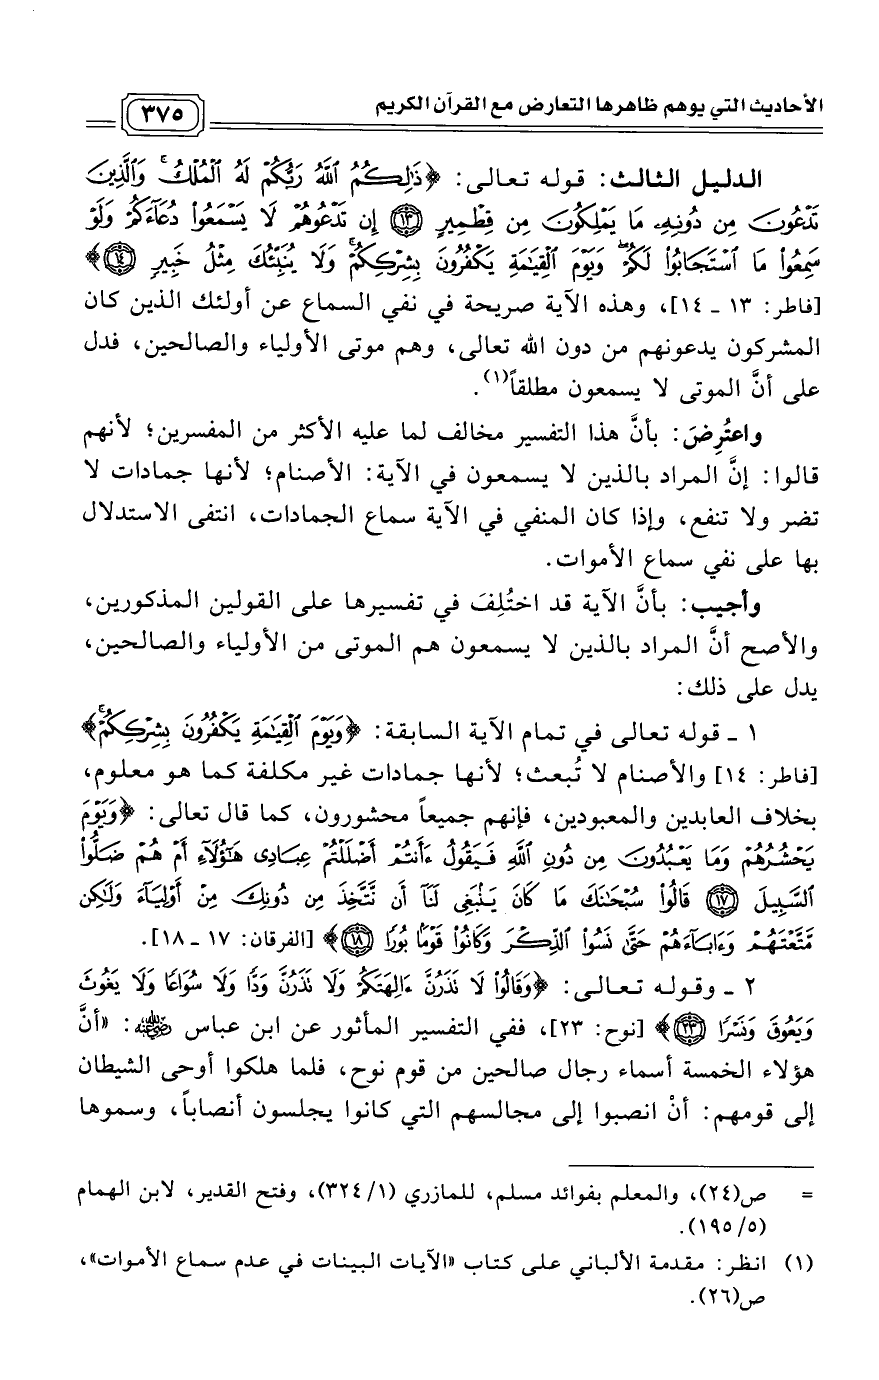 الأحاديث التي يوهم ظاهرها التعارض مع القرآن الكريم
٣٧٥
الدليل الثالث: قوله تعالى: ﴿ذَٰلِكُمُ ٱللَّهُ رَبُّكُمْ لَهُ ٱلْمُلْكُ ۚ وَٱلَّذِينَ
تَدْعُونَ مِن دُونِهِۦ مَا يَمْلِكُونَ مِن قِطْمِيرٍ ﴿١٣﴾ إِن تَدْعُوهُمْ لَا يَسْمَعُوا۟ دُعَآءَكُمْ وَلَوْ
سَمِعُوا۟ مَا ٱسْتَجَابُوا۟ لَكُمْ ۖ وَيَوْمَ ٱلْقِيَٰمَةِ يَكْفُرُونَ بِشِرْكِكُمْ ۚ وَلَا يُنَبِّئُكَ مِثْلُ خَبِيرٍ ﴿١٤﴾﴾
[فاطر: ١٣ ـ ١٤]، وهذه الآية صريحة في نفي السماع عن أولئك الذين كان
المشركون يدعونهم من دون الله تعالى، وهم موتى الأولياء والصالحين، فدل
على أنَّ الموتى لا يسمعون مطلقاً(١).
واعتُرِضَ: بأنَّ هذا التفسير مخالف لما عليه الأكثر من المفسرين؛ لأنهم
قالوا: إنَّ المراد بالذين لا يسمعون في الآية: الأصنام؛ لأنها جمادات لا
تضر ولا تنفع، وإذا كان المنفي في الآية سماع الجمادات، انتفى الاستدلال
بها على نفي سماع الأموات.
وأجيب: بأنَّ الآية قد اختُلِفَ في تفسيرها على القولين المذكورين،
والأصح أنَّ المراد بالذين لا يسمعون هم الموتى من الأولياء والصالحين،
يدل على ذلك:
١ ـ قوله تعالى في تمام الآية السابقة: ﴿وَيَوْمَ ٱلْقِيَٰمَةِ يَكْفُرُونَ بِشِرْكِكُمْ ۚ﴾
[فاطر: ١٤] والأصنام لا تُبعث؛ لأنها جمادات غير مكلفة كما هو معلوم،
بخلاف العابدين والمعبودين، فإنهم جميعاً محشورون، كما قال تعالى: ﴿وَيَوْمَ
يَحْشُرُهُمْ وَمَا يَعْبُدُونَ مِن دُونِ ٱللَّهِ فَيَقُولُ ءَأَنتُمْ أَضْلَلْتُمْ عِبَادِى هَٰٓؤُلَآءِ أَمْ هُمْ ضَلُّوا۟
ٱلسَّبِيلَ ﴿١٧﴾ قَالُوا۟ سُبْحَٰنَكَ مَا كَانَ يَنۢبَغِى لَنَآ أَن نَّتَّخِذَ مِن دُونِكَ مِنْ أَوْلِيَآءَ وَلَٰكِن
مَّتَّعْتَهُمْ وَءَابَآءَهُمْ حَتَّىٰ نَسُوا۟ ٱلذِّكْرَ وَكَانُوا۟ قَوْمًۢا بُورًا ﴿١٨﴾﴾ [الفرقان: ١٧ ـ ١٨].
٢ ـ وقوله تعالى: ﴿وَقَالُوا۟ لَا تَذَرُنَّ ءَالِهَتَكُمْ وَلَا تَذَرُنَّ وَدًّا وَلَا سُوَاعًا وَلَا يَغُوثَ
وَيَعُوقَ وَنَسْرًا ﴿٢٣﴾﴾ [نوح: ٢٣]، ففي التفسير المأثور عن ابن عباس رضي الله عنهما: «أنَّ
هؤلاء الخمسة أسماء رجال صالحين من قوم نوح، فلما هلكوا أوحى الشيطان
إلى قومهم: أنْ انصبوا إلى مجالسهم التي كانوا يجلسون أنصاباً، وسموها
= ص(٢٤)، والمعلم بفوائد مسلم، للمازري (١/ ٣٢٤)، وفتح القدير، لابن الهمام
(٥/ ١٩٥).
(١) انظر: مقدمة الألباني على كتاب «الآيات البينات في عدم سماع الأموات»،
ص(٢٦).